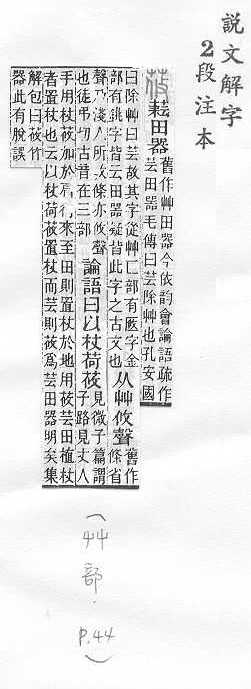 説文解字
2段注本
莜
田器
舊作艸田器今依韵會論語疏作
芸田器毛傳曰芸除艸也孔安國
曰除艸曰芸故其字從艸匚部有字金
部有銚字皆云田器疑皆此字之古文也
从艸攸聲
舊作
條省
聲乃淺人所改條亦攸聲
也徒弔切古音在三部
論語曰以杖荷莜
見微子篇謂
子路見丈人
手用杖莜加於肩行來至田則置杖於地用莜芸田植杖
者置杖也云以杖荷莜置杖而芸則莜爲芸田器明矣集
解包曰莜竹
器此有脫誤
(艸部.P.44)